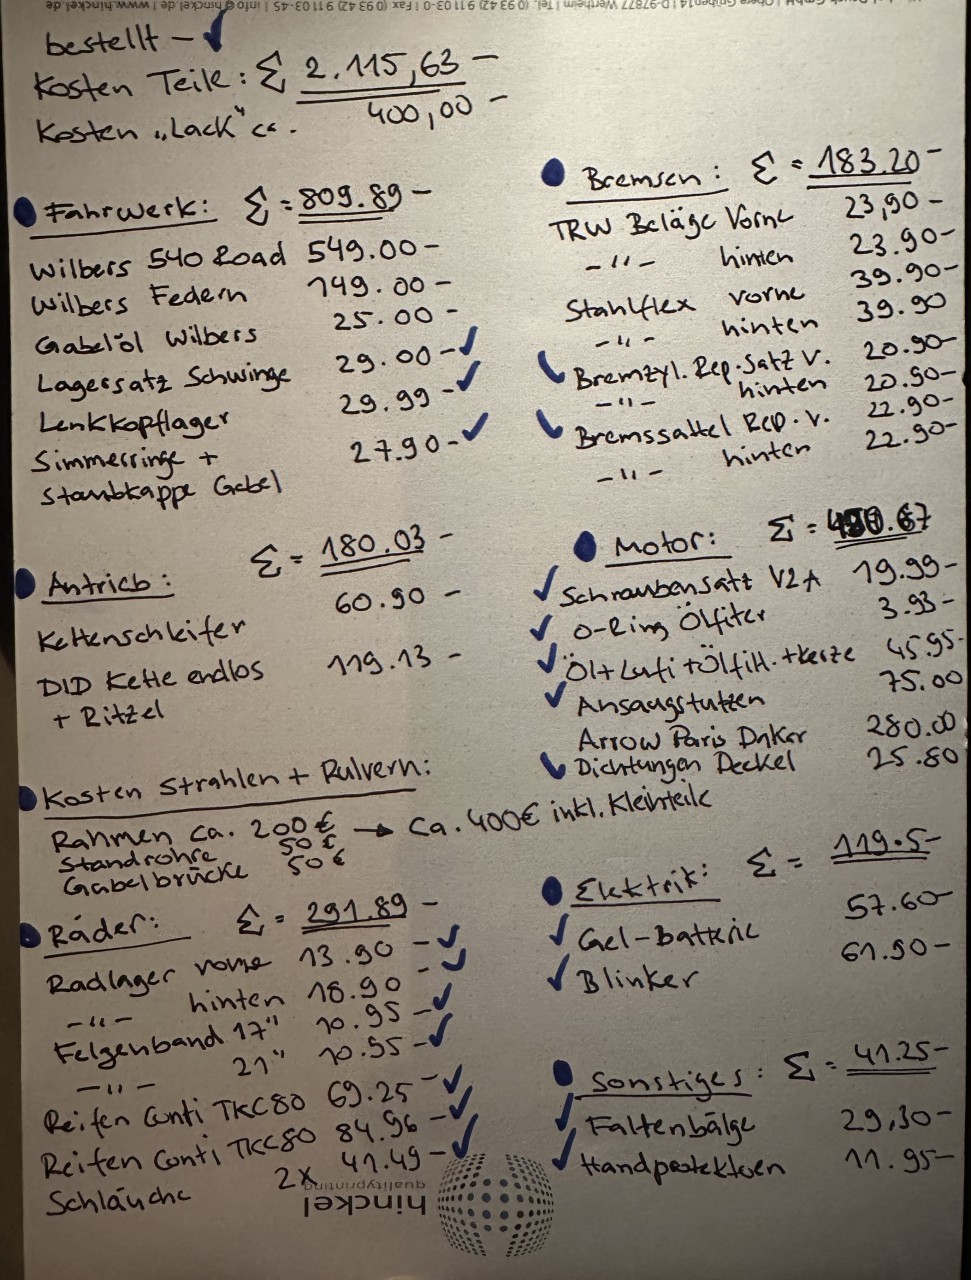 Obere Grüben 14 | D-97877 Wertheim | Tel. (0 93 42) 9 11 03-0 | Fax (0 93 42) 9 11 03-45 | info@hinckel.de | www.hinckel.de
bestellt – ✓
Kosten Teile: Σ 2.115,63 –
Kosten „Lack" ca. 400,00 –
Fahrwerk: Σ = 809.89 –
Wilbers 540 Road 549.00 –
Wilbers Federn 149.00 –
Gabelöl Wilbers 25.00 –
Lagersatz Schwinge 29.00 – ✓
Lenkkopflager 29.99 – ✓
Simmerringe + 27.90 – ✓
Staubkappe Gabel
Antrieb: Σ = 180.03 –
Kettenschleifer 60.90 –
DID Kette endlos 119.13 –
+ Ritzel
Kosten Strahlen + Pulvern:
Rahmen ca. 200 € → ca. 400€ inkl. Kleinteile
Standrohre 50 €
Gabelbrücke 50 €
Räder: Σ = 291.89 –
Radlager vorne 13.90 – ✓
–"– hinten 18.90 – ✓
Felgenband 17" 10.95 – ✓
–"– 21" 10.95 – ✓
Reifen Conti TKC80 69.25 – ✓
Reifen Conti TKC80 84.96 – ✓
Schläuche 2x 41.49 – ✓
Bremsen: Σ = 183.20 –
TRW Beläge Vorne 23,90 –
–"– hinten 23.90 –
Stahlflex vorne 39.90 –
–"– hinten 39.90
✓ Bremzyl. Rep.Satz v. 20.90 –
–"– hinten 20.90 –
✓ Bremssattel Rep. v. 22.90 –
–"– hinten 22.90 –
Motor: Σ =
✓ Schraubensatz V2A 19.99 –
✓ O-Ring Ölfilter 3.93 –
✓ Öl + Lufi + Ölfilt. + Kerze 45.95 –
✓ Ansaugstutzen 75.00
Arrow Paris Dakar 280.00
✓ Dichtungen Deckel 25.80
Elektrik: Σ = 119.5 –
✓ Gel-Batterie 57.60 –
✓ Blinker 61.90 –
Sonstiges: Σ = 41.25 –
✓ Faltenbälge 29,30 –
✓ Handprotektoren 11.95 –
hinckel
qualityprinting